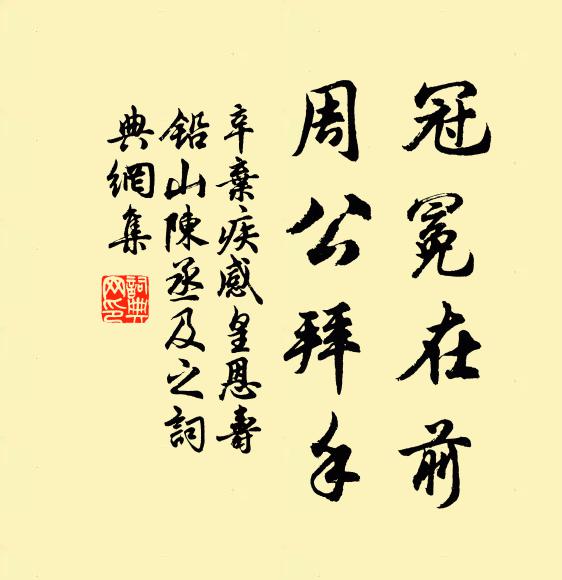 冠冕在前
周公拜手
辛棄疾感皇恩壽
鉛山陳丞及之詞
典網集
詞典
网印